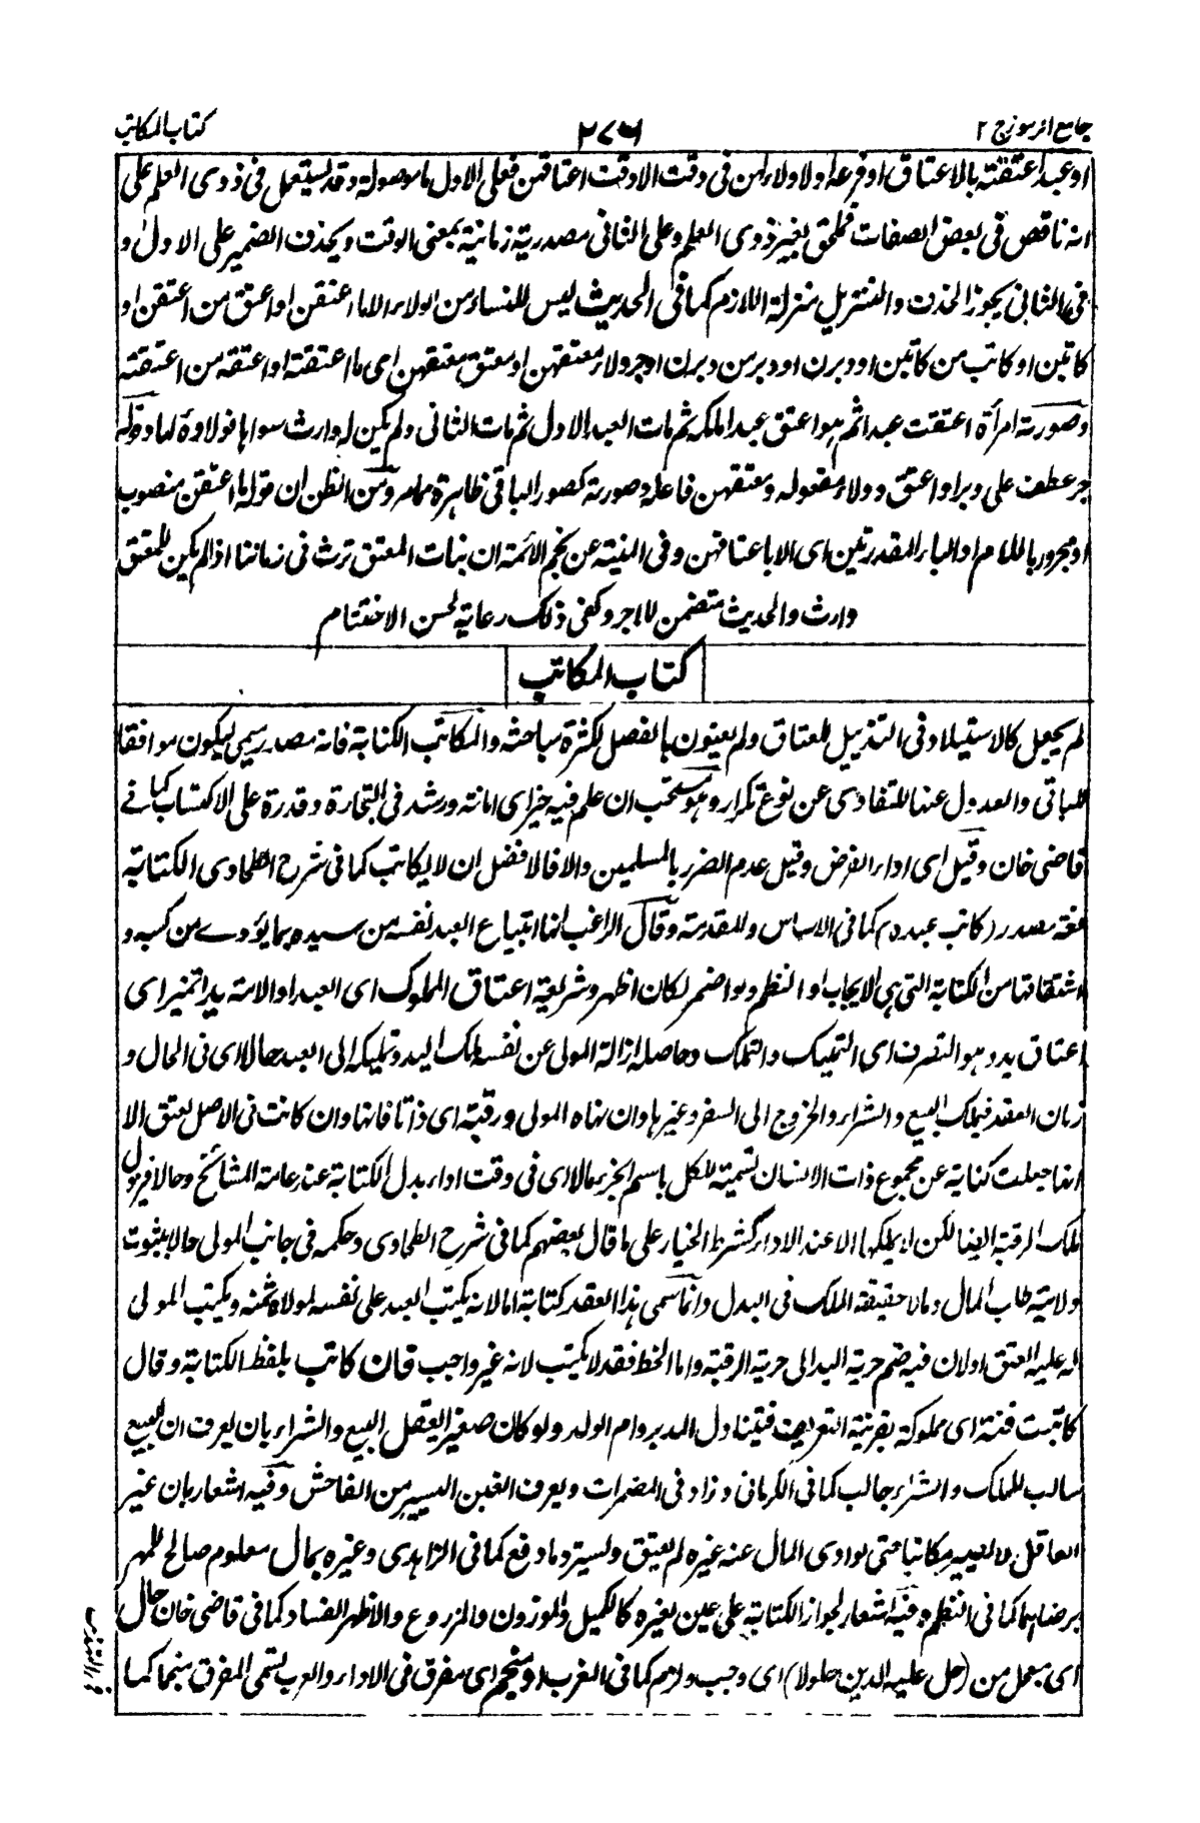 جامع الرموز ج ٢
٢٧٦
كتاب المكاتب
او عبدا عتقته بالاعتاق او فرعه اولا ولاء لهن فى وقت الا وقت اعتاقهن فعلى الاول ما موصولة وقد يستعمل فى ذوى العلم على
انه ناقص فى بعض الصفات فملحق بغير ذوى العلم وعلى الثانى مصدرية زمانية بمعنى الوقت ويحذف الضمير على الاول و
فى الثانى يجوز الحذف والتنزيل منزلة اللازم كما فى الحديث ليس للنساء من الولاء الا ما اعتقن او اعتق من اعتقن او
كاتبن او كاتب من كاتبن او دبرن او دبر من دبرن او جر ولاء معتقهن او معتق معتقهن اى ما اعتقته او اعتقه من اعتقته
وصورته امرأة اعتقت عبدا ثم هو اعتق عبدا ملكه ثم مات العبد الاول ثم مات الثانى ولم يكن له وارث سواها فولاؤه لها وقوله
جر عطف على دبر او اعتق وولاء مفعوله ومعتقهن فاعله وصورته كصور الباقى ظاهرة مما مر ومن الظن ان قوله ما اعتقن منصوب
او مجرور باللام او الباء المقدرتين اى الا باعتاقهن وفى المنية عن نجم الائمة ان بنات المعتق ترث فى زماننا اذا لم يكن للمعتق
وارث والحديث متضمن للاجر وكفى ذلك رعاية لحسن الاختتام
كتاب المكاتب
لم يجعل كالاستيلاد فى التذييل للعتاق ولم يعنون بالفصل لكثرة مباحثه والمكاتب الكتابة فانه مصدر ميمى ليكون موافقا
للباقى والعدول عنها للتفادى عن نوع تكرار وهو مستحب ان علم فيه خيرا اى امانة ورشد فى التجارة وقدرة على الاكتساب كما فى
قاضى خان وقيل اى اداء الفرض وقيل عدم الضرر بالمسلمين والا فالافضل ان لا يكاتب كما فى شرح الطحاوى الكتابة
لغة مصدر (كاتب عبده) كما فى الاساس والمقدمة وقال الراغب انها ابتياع العبد نفسه من سيده بما يؤدى من كسبه و
اشتقاقها من الكتابة التى هى الايجاب او النظم ولو اضمر لكان اظهر وشريعة اعتاق المملوك اى العبد او الامة يدا تميز اى
اعتاق يده وهو التصرف اى التمليك والتملك وحاصله ازالة المولى عن نفسه ملك اليد وتمليكه الى العبد حالا اى فى الحال و
زمان العقد فيملك البيع والشراء والخروج الى السفر وغيرها وان نهاه المولى ورقبة اى ذاتا فانها وان كانت فى الاصل لعنق الا
انها جعلت كناية عن مجموع ذات الانسان تسمية للكل باسم الجزء مالا اى فى وقت اداء بدل الكتابة عند عامة المشائخ وحالا فيزول
ملك الرقبة ايضا لكن لا يملكها الا عند الاداء كشرط الخيار على ما قال بعضهم كما فى شرح الطحاوى وحكمه فى جانب المولى حالا ثبوت
ولاية طلب المال ومالا حقيقة الملك فى البدل وانما سمى هذا العقد كتابة اما لانه يكتب العبد على نفسه لمولاه ثمنه ويكتب المولى
له عليه العتق او لان فيه ضم حرية اليد الى حرية الرقبة واما الخط فقد لا يكتب لانه غير واجب فان كاتب بلفظ الكتابة وقال
كاتبت قنة اى مملوكه بقرينة التعريف فيتناول المدبر وام الولد ولو كان صغيرا يعقل البيع والشراء بان يعرف ان البيع
سالب للملك والشراء جالب كما فى الكرمانى وزاد فى المضمرات ويعرف الغبن اليسير من الفاحش وفيه اشعار بان غير
العاقل لا يصير مكاتبا حتى لو ادى المال عنه غيره لم يعتق ويسترد ما دفع كما فى الزاهدى وغيره بمال معلوم صالح للمهر
برضاهما كما فى النظم وفيه اشعار لجواز الكتابة على عين لغيره كالكيل والموزون والمزروع والاظهر الفساد كما فى قاضى خان حال
اى معجل من (حل عليه الدين حلولا) اى وجب ولزم كما فى المغرب او منجم اى مفرق فى الاداء والعرب يسمى المفرق منجما كما